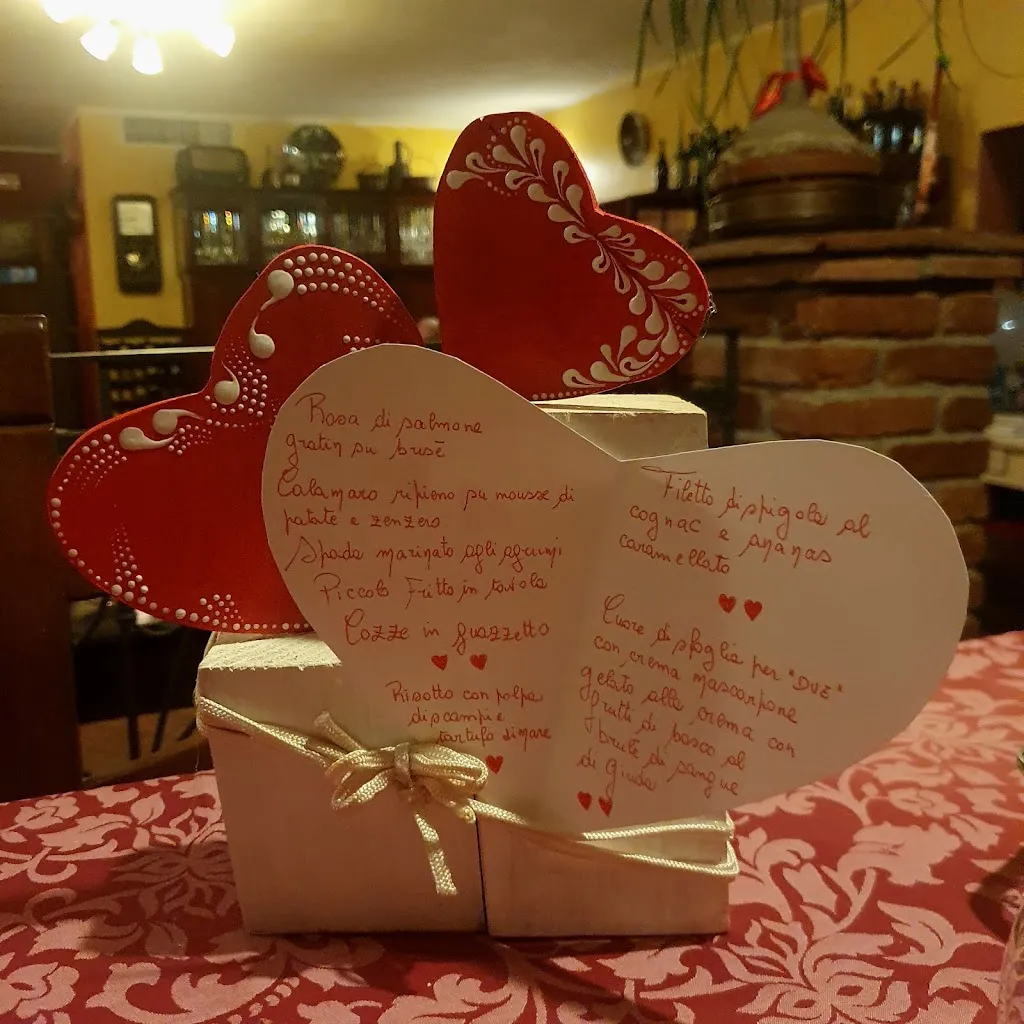 Rosa di salmone
gratin su brisè
Calamaro ripieno su mousse di
patate e zenzero
Spada marinato agli agrumi
Piccolo Fritto in tavola
Cozze in guazzetto
Risotto con polpa
di scampi e
tartufo di mare
Filetto di spigola al
cognac e ananas
caramellato
Cuore di sfoglia per "DUE"
con crema mascarpone
gelato alla crema con
frutti di bosco al
brulè di sangue
di giuda